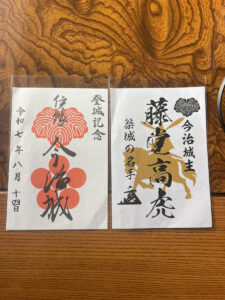 登城記念
伊豫
今治城
令和七年八月十四日
今治城主
藤堂高虎
築城の名手